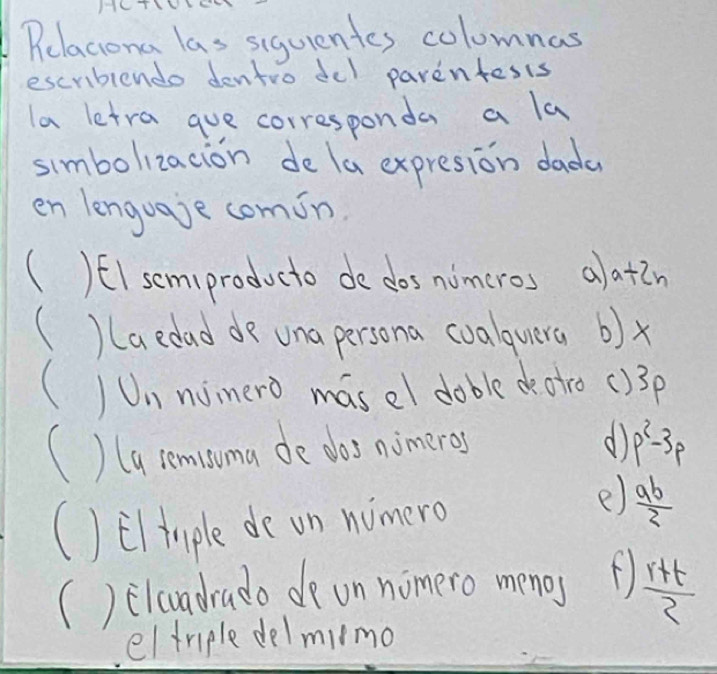 Relaciona las siguientes columnas
escribiendo dentro del paréntesis
la letra que corresponda a la
simbolización de la expresión dada
en lenguaje común.
( ) El semiproducto de dos números a) a+2n
( ) La edad de una persona cualquiera b) x
( ) Un número más el doble de otro c) 3p
( ) La semisuma de dos números d) p²-3p
( ) El triple de un número e) ab/2
( ) El cuadrado de un número menos f) r+t/2
el triple del mismo